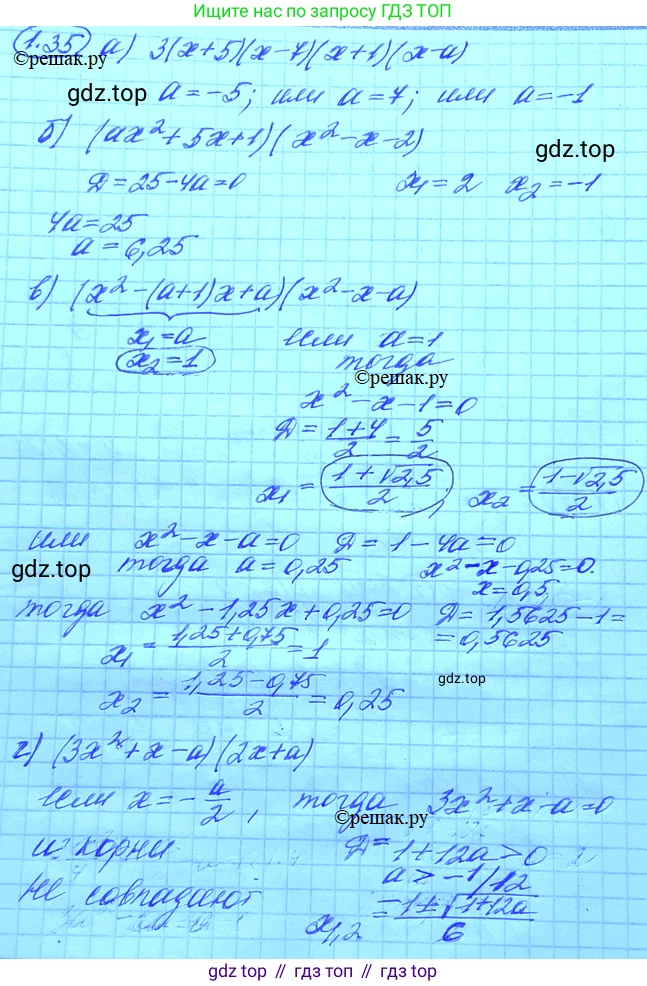 Ищите нас по запросу ГДЗ ТОП
1.35 а) 3(x+5)(x-7)(x+1)(x-a)
©решак.ру
gdz.top a = -5; или a = 7; или a = -1
б) (ax²+5x+1)(x²-x-2)
gdz.top
D = 25-4a=0 x₁ = 2 x₂ = -1
4a=25
a = 6,25
в) (x²-(a+1)x+a)(x²-x-a)
x₁=a если a=1
x₂=1 тогда
©решак.ру
x²-x-1=0
D = (1+4)/2 = 5/2
x₁ = (1+√2,5)/2, x₂ = (1-√2,5)/2
или x²-x-a=0 D = 1-4a=0
gdz.top тогда a=0,25 x²-x-0,25=0.
x=0,5,
тогда x²-1,25x+0,25=0 D = 1,5625-1=
=0,5625
x₁ = (1,25+0,75)/2 = 1
x₂ = (1,25-0,75)/2 = 0,25
gdz.top
г) (3x²+x-a)(2x+a)
если x=-a/2, тогда 3x²+x-a=0
©решак.ру
и корни D = 1+12a>0
не совпадают a>-1/12
x₁,₂ = (-1±√1+12a)/6
gdz.top // гдз.топ // gdz.top // гдз.топ